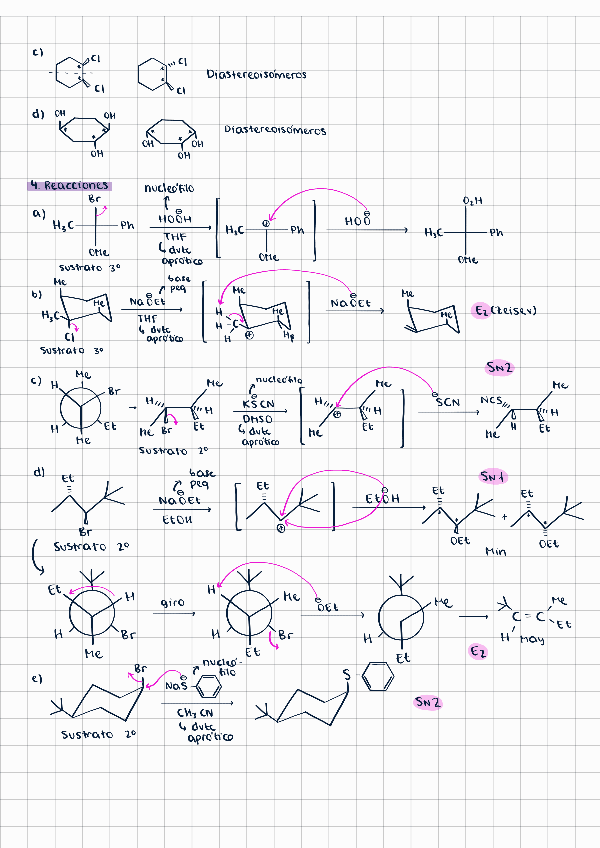 c) Cl Cl Cl Cl Diastereoisómeros
d) OH OH OH OH OH OH Diastereoisómeros
4. Reacciones
a) Br H₃C Ph OMe
Sustrato 3º
nucleófilo
HOOH
THF
↳ dvte
aprótico
H₃C ⊕ Ph OMe
HOO⊖
O₂H H₃C Ph OMe
b) Me Me H₃C Cl
Sustrato 3º
base
peq
NaOEt
THF
↳ dvte
aprótico
Me Me H H C H ⊕
NaOEt
Me Me
E₂ (Zeisev)
c) Me H Br H Et Me
H Me H Me Br Et
Sustrato 2º
nucleófilo
KSCN
DMSO
↳ dvte
aprótico
H Me H Me ⊕ Et
⊖SCN
SN2
NCS Me H Me H Et
d) Et Br
Sustrato 2º
base
peq
NaOEt
EtOH
Et ⊕
EtOH
SN1
Et OEt + Et OEt
Min
Et H H Br Me
giro
H Me H Br Et
⊖OEt
Me H Et
C = C Me Et H May
E₂
e) Br
Sustrato 2º
nucleó-
filo
NaS
CH₃CN
↳ dvte
aprótico
S
SN2